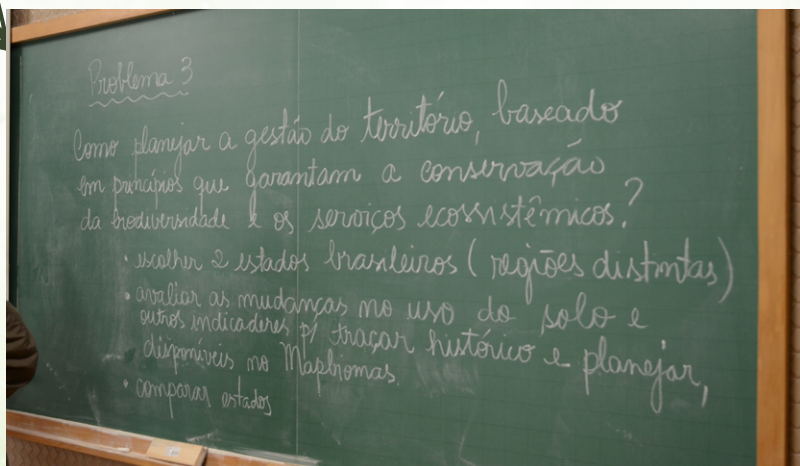 Problema 3
Como planejar a gestão do território, baseado
em princípios que garantam a conservação
da biodiversidade e os serviços ecossistêmicos?
• escolher 2 estados brasileiros (regiões distintas)
• avaliar as mudanças no uso do solo e
outros indicadores p/ traçar histórico e planejar,
disponíveis no Mapbiomas.
• comparar estados